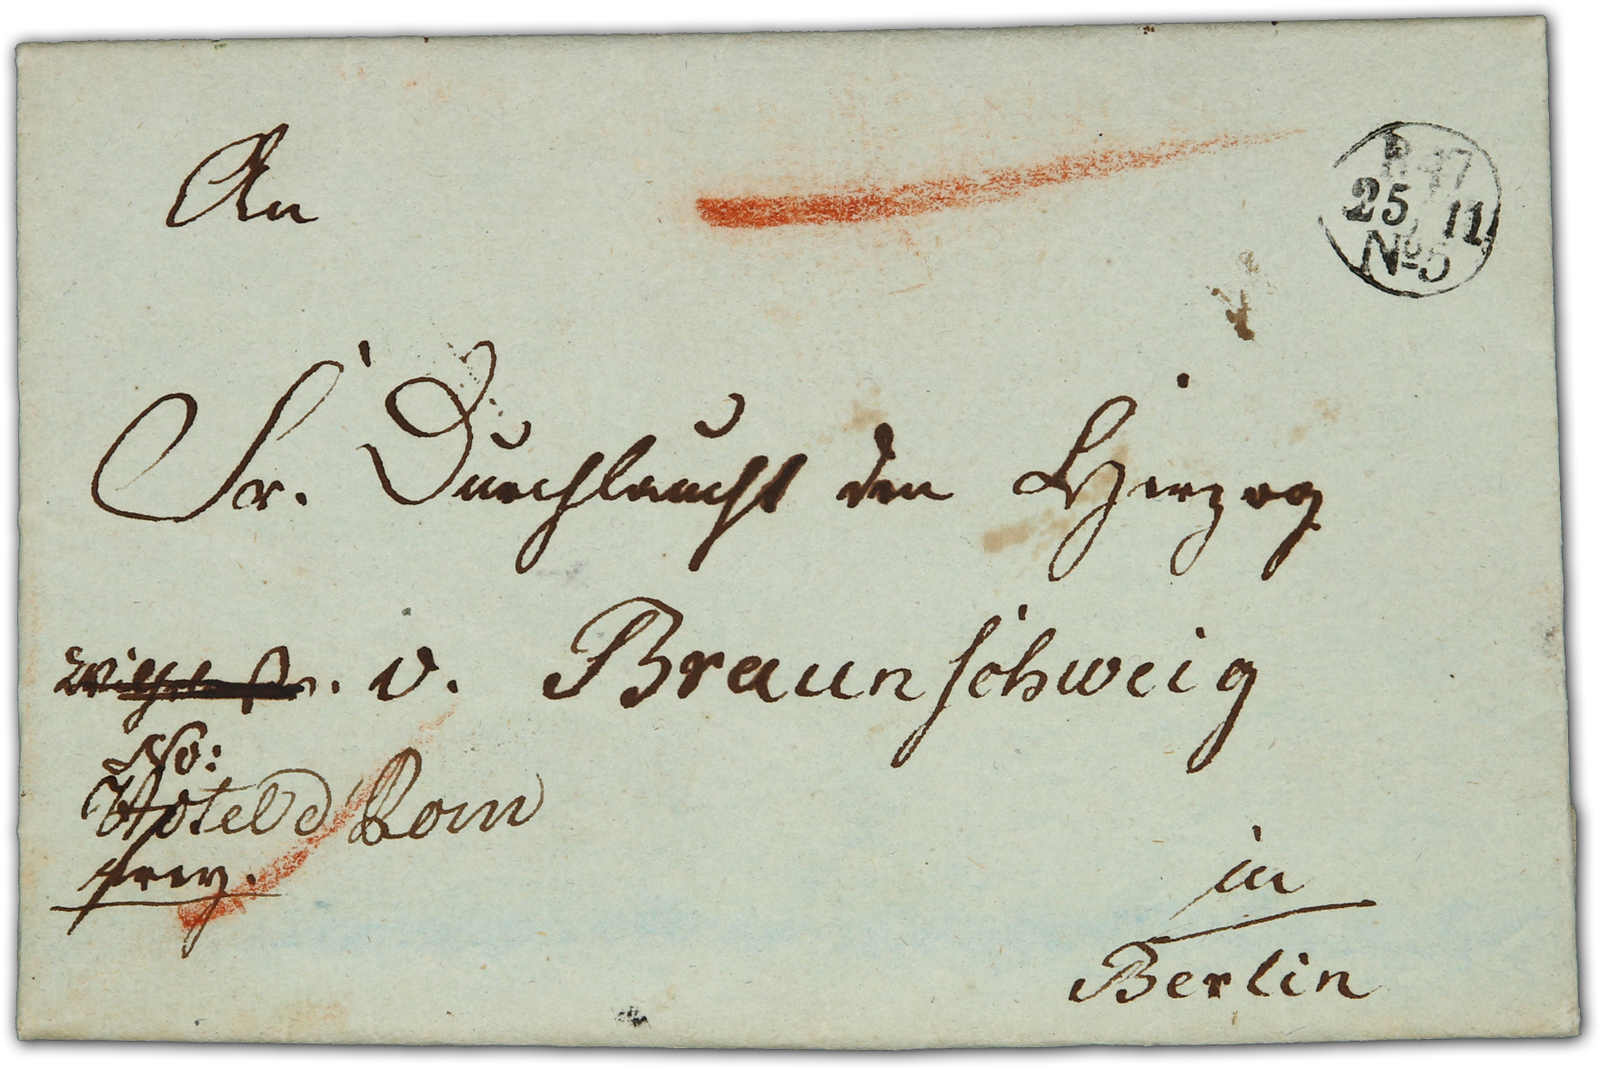 An
25 11
No 5
Sr. Durchlaucht den Herzog
v. Braunschweig
No:
Hotel d Rom
frey.
in
Berlin